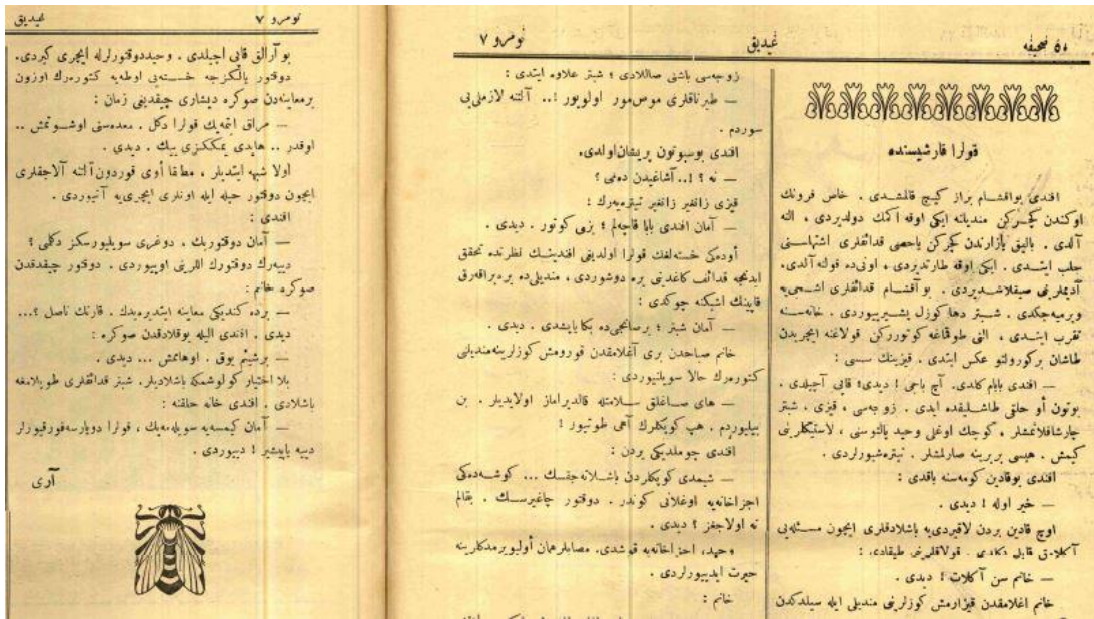 صحیفه
غیدیق
نومرو ۷
قولرا قارشیسنده
افندی بو اقشام براز كیچ قالمشدی . خاص فرونك
اوكندن كچركن مندیلنه ایكی اوقه اكمك دولدیردی ، الته
آلدی . بالیق پازارندن كچركن یاخصی قدائفلری اشتهاسنی
جلب ایتدی . ایكی اوقه طارتدیردی ، اونی‌ده قولنه آلدی.
آدیملرینی صیقلاشدیردی . بو آقشام قدائفلری اشجی‌یه
ویرمیه‌جكدی . شبتر دها كوزل پشیرییوردی . خانه‌سنه
تقرب ایتدی . الی طوقماغه كوتوركن قولاغنه ایچریدن
طاشان بر كورولتو عكس ایتدی . قیزینك سسی :
— افندی بابام كلدی. آچ باجی ! دیدی؛ قاپی آچیلدی .
بوتون أو خلقی طاشلقده ایدی . زوجه‌سی ، قیزی ، شبتر
چارشافلانمشلر . كوچك اوغلی وحید پالتوسنی ، لاستیكلرینی
كیمش . هپسی بربرینه صارلمشلر . تیتره‌شیورلردی .
افندی بو قادین كومه‌سنه باقدی :
— خیر اوله ! دیدی .
اوچ قادین بردن لاقیردی‌یه باشلادقلری ایچون مسئله‌یی
آكلامق قابل دكلدی . قولاقلرینی طیقادی :
— خانم سن آكلات ! دیدی .
خانم اغلامقدن قیزارمش كوزلرینی مندیلی ایله سیلدكدن
زوجه‌سی باشنی صاللادی ؛ شبتر علاوه ایتدی :
— طیرناقلری موص‌مور اولویور !.. آلتنه لازملی‌یی
سوردم .
افندی بوسبوتون پریشان اولدی.
— نه ؟ !.. آشاغیدن ده‌می ؟
قیزی زانغیر زانغیر تیتره‌یه‌رك :
— آمان افندی بابا قاچه‌لم ؛ بزی كوتور . دیدی .
أوده‌كی خسته‌لغك قولرا اولدیغی افندینك نظرنده تحقق
ایدنجه قدائف كاغدینی یره دوشوردی ، مندیلی‌ده یره براقه‌رق
قاپینك اشیكنه چوكدی :
— آمان شبتر ؛ بر صانجی‌ده بكا یاپشدی . دیدی .
خانم صباحدن بری آغلامقدن قورومش كوزلرینه مندیلنی
كتوره‌رك حالا سویلنیوردی :
— های صاغلق سلامتله قالدیراماز اولایدیلر . بن
بیلیوردم . هپ كوپكلرك آهی طوتیور !
افندی چوملدیكی یردن :
— شیمدی كوپكلردن باشلانه‌جقسك ... كوشه‌ده‌كی
اجزاخانه‌یه اوغلانی كوندر . دوقتور چاغیرسك . بقالم
نه اولاجغز ؟ دیدی .
وحید، اجزاخانه‌یه قوشدی. مصابلر همان أولیویرمدكلرینه
حیرت ایدییورلردی .
خانم :
نومرو ۷
غیدیق
بو آرالق قاپی آچیلدی . وحید دوقتورله ایچری كیردی.
دوقتور یالكزجه خسته‌یی اوطه‌یه كتوره‌رك اوزون
بر معاینه‌دن صوكره دیشاری چیقدیغی زمان :
— مراق ایتمه‌یك قولرا دكل . معده‌سنی اوشوتمش ..
اوقدر .. هایدی یمككزی ییك . دیدی .
اولا شبهه ایتدیلر ، مطلقا أوی قوردون آلتنه آلاجقلری
ایچون دوقتور حیله ایله اونلری ایچری‌یه آتیوردی .
افندی :
— آمان دوقتوربك . دوغری سویلیورسكز دكلمی ؟
دیه‌رك دوقتورك اللرینی اوپییوردی . دوقتور چیقدقدن
صوكره خانم :
— برده كندیكی معاینه ایتدیره‌یدك . قارنك ناصل ؟...
دیدی . افندی الیله یوقلادقدن صوكره :
— برشیئم یوق . اوهامش ... دیدی .
بلا اختیار كولوشمكه باشلادیلر. شبتر قدائفلری طوپلامغه
باشلادی . افندی خانه خلقنه :
— آمان كیمسه‌یه سویله‌مه‌یك ، قولرا دویارسه قورقیورلر
دییه یاپیشیر ! دییوردی .
آری